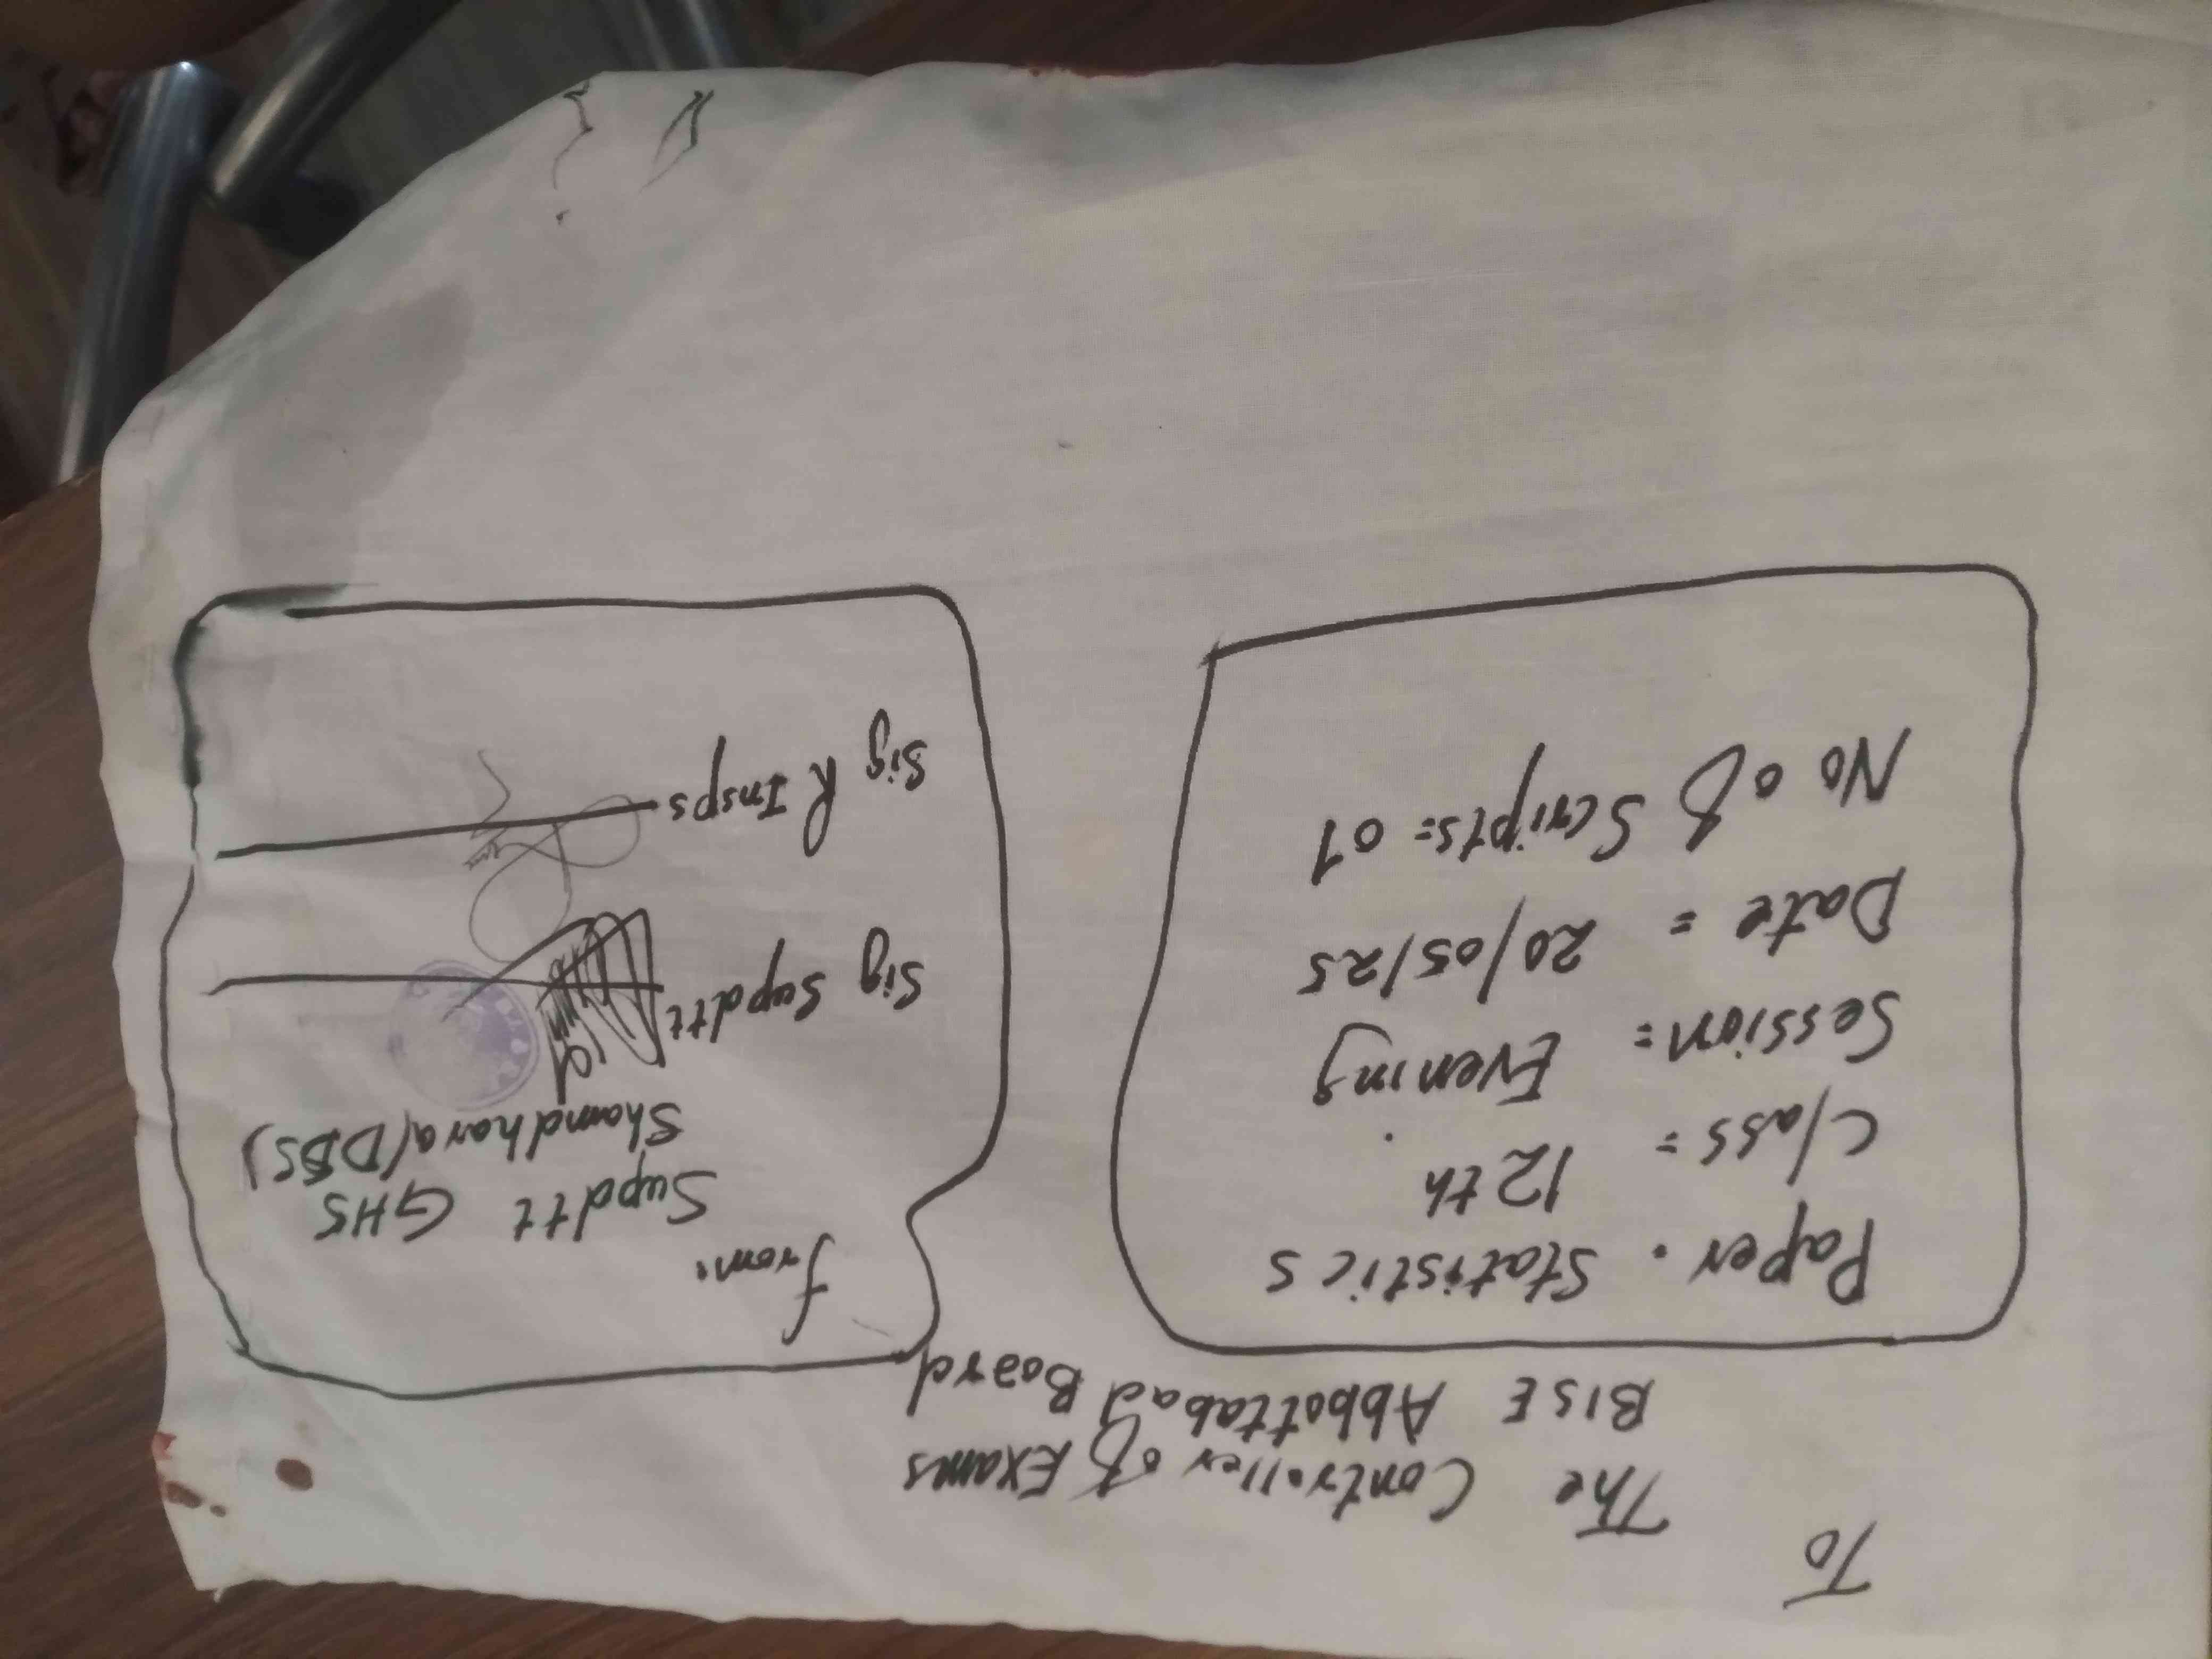 To
The Controller of Exams
BISE Abbottabad Board
Paper. Statistics
Class = 12th
Session = Evening
Date = 20/05/25
No of Scripts = 01
from:
Supdtt GHS
Shamdhara(DBS)
Sig Supdtt
Sig R Insps